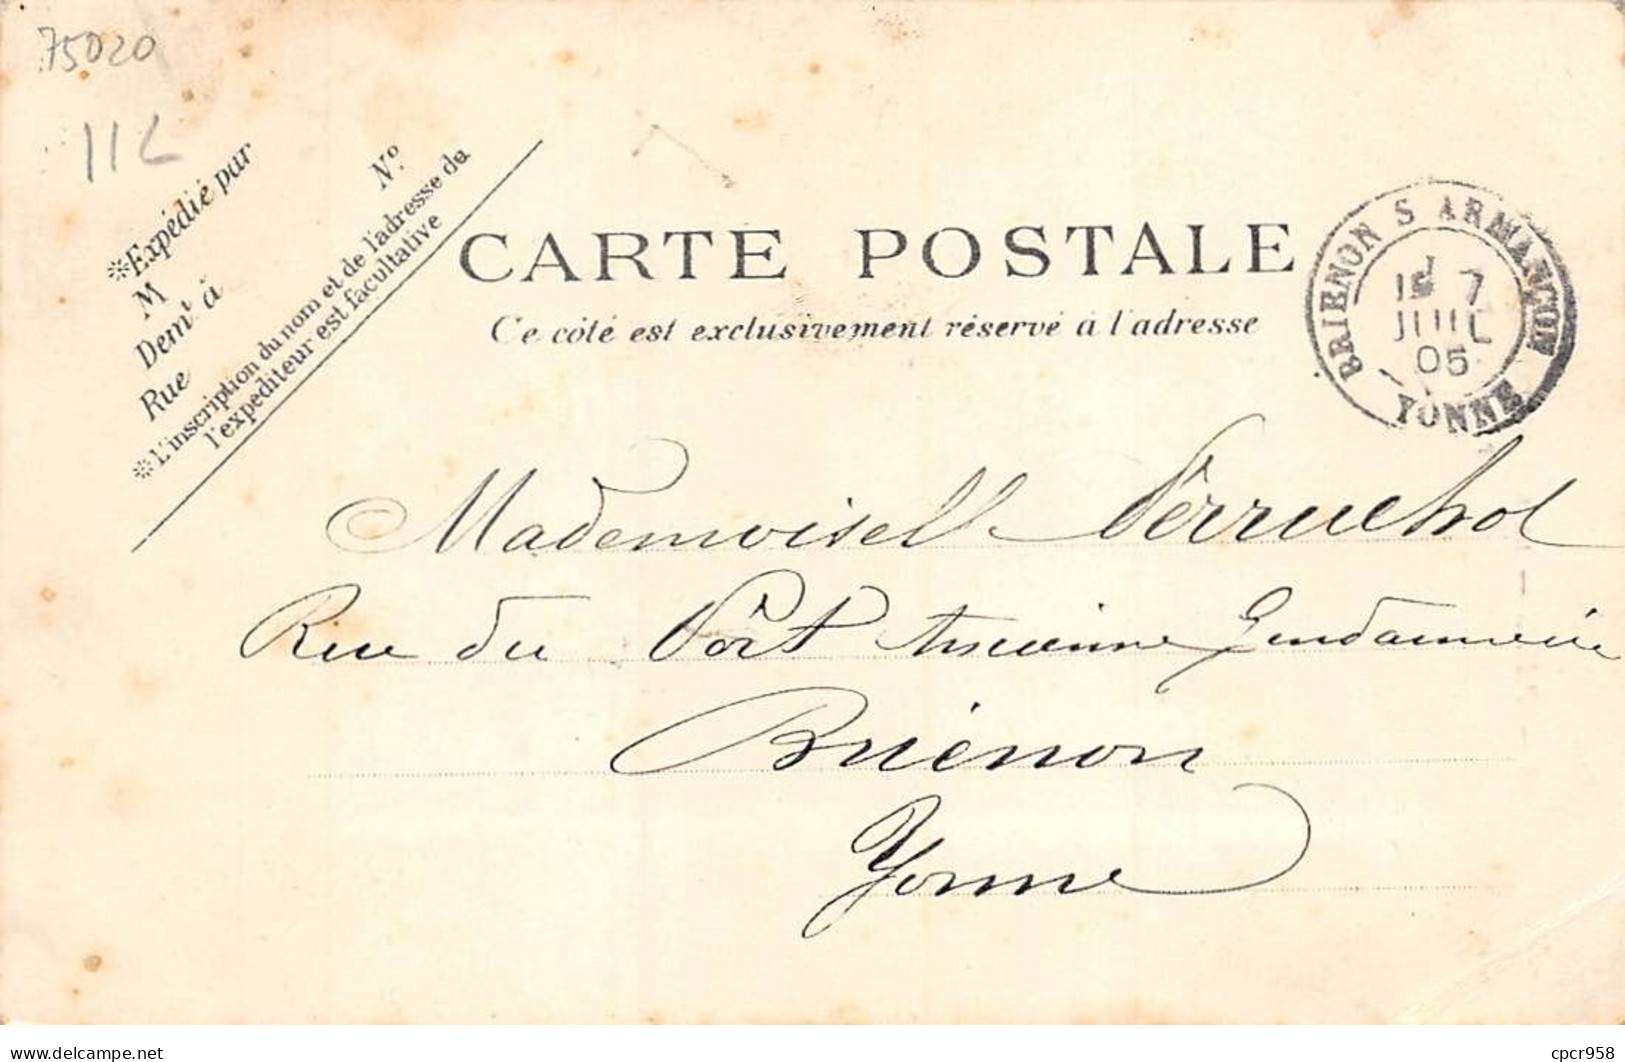 75020
11L
※Expédié par
M
Demt à
Rue
No.
※L'inscription du nom et de l'adresse de
l'expéditeur est facultative
CARTE POSTALE
Ce côté est exclusivement réservé à l'adresse
BRIENON S ARMANÇON
7
JUIL
05
YONNE
Mademoiselle Perruchot
Rue du Port Ancienne Gendarmerie
Briénon
Yonne
delcampe.net
cpcr958